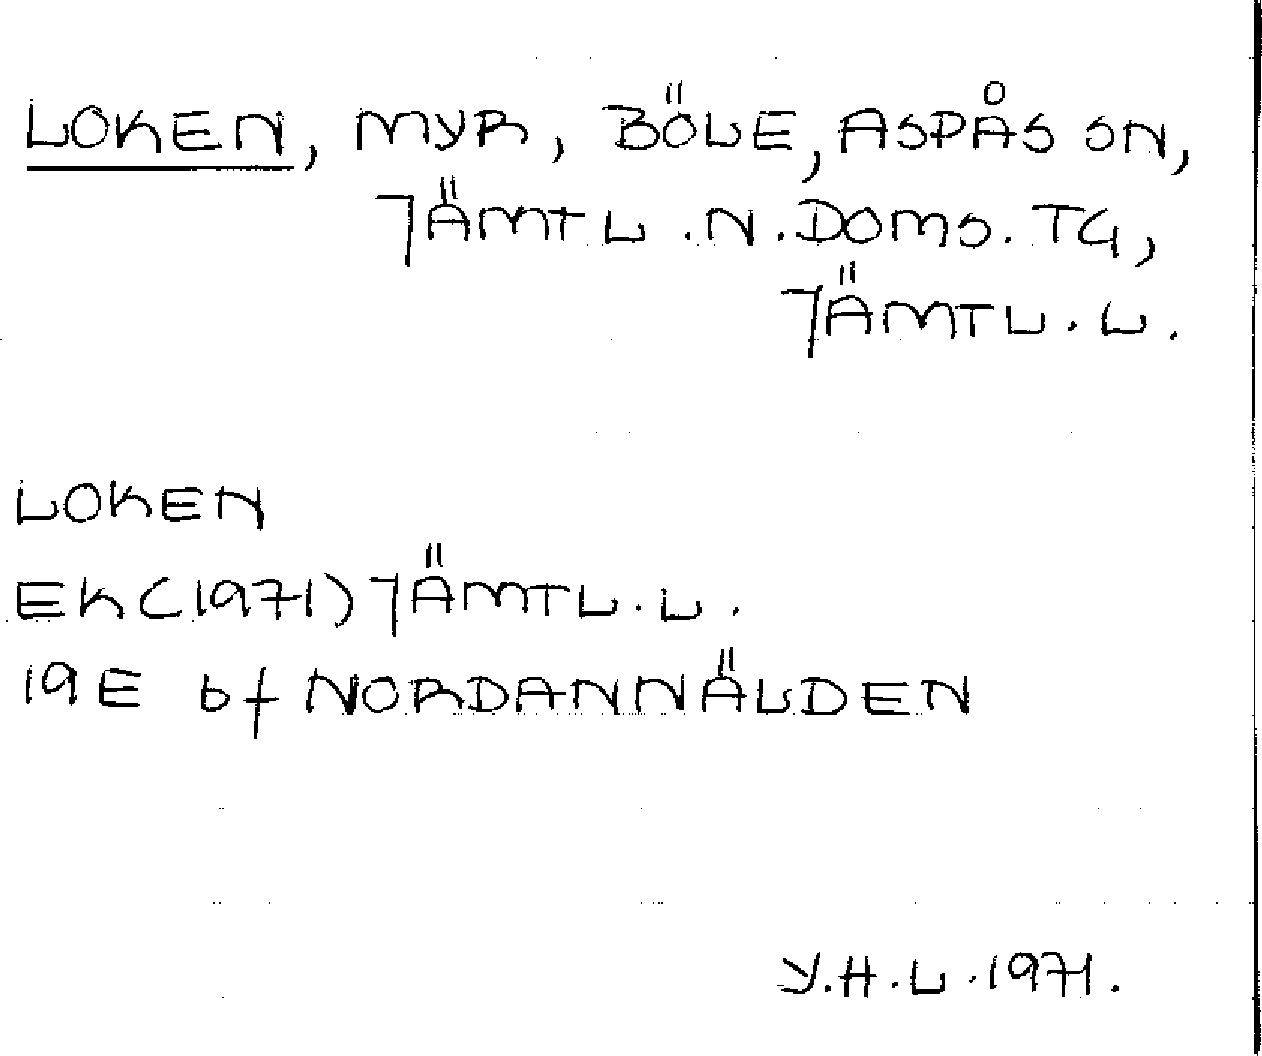 LOKEN, MYR, BÖLE, ASPÅS SN,
JÄMTL. N. DOMS. TG,
JÄMTL. L.
LOKEN
EK (1971) JÄMTL. L.
19E bf NORDANNÄLDEN
Y.H.L. 1971.